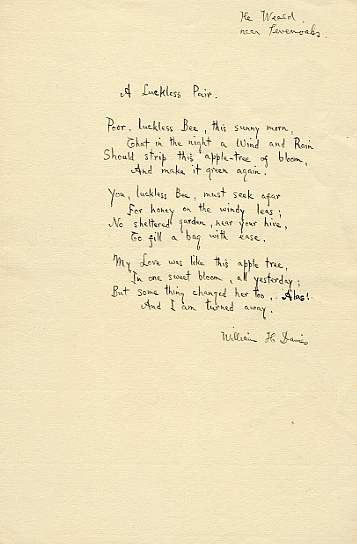 The Weald.
near Sevenoaks.
A Luckless Pair.
Poor, luckless Bee, this sunny morn,
That in the night a Wind and Rain
Should strip this apple-tree of bloom,
And make it green again.
You, luckless Bee, must seek afar
For honey on the windy leas;
No sheltered garden, near your hive,
To fill a bag with ease.
My Love was like this apple tree,
In one sweet bloom, all yesterday;
But some thing changed her too, Alas!
And I am turned away.
William H. Davies